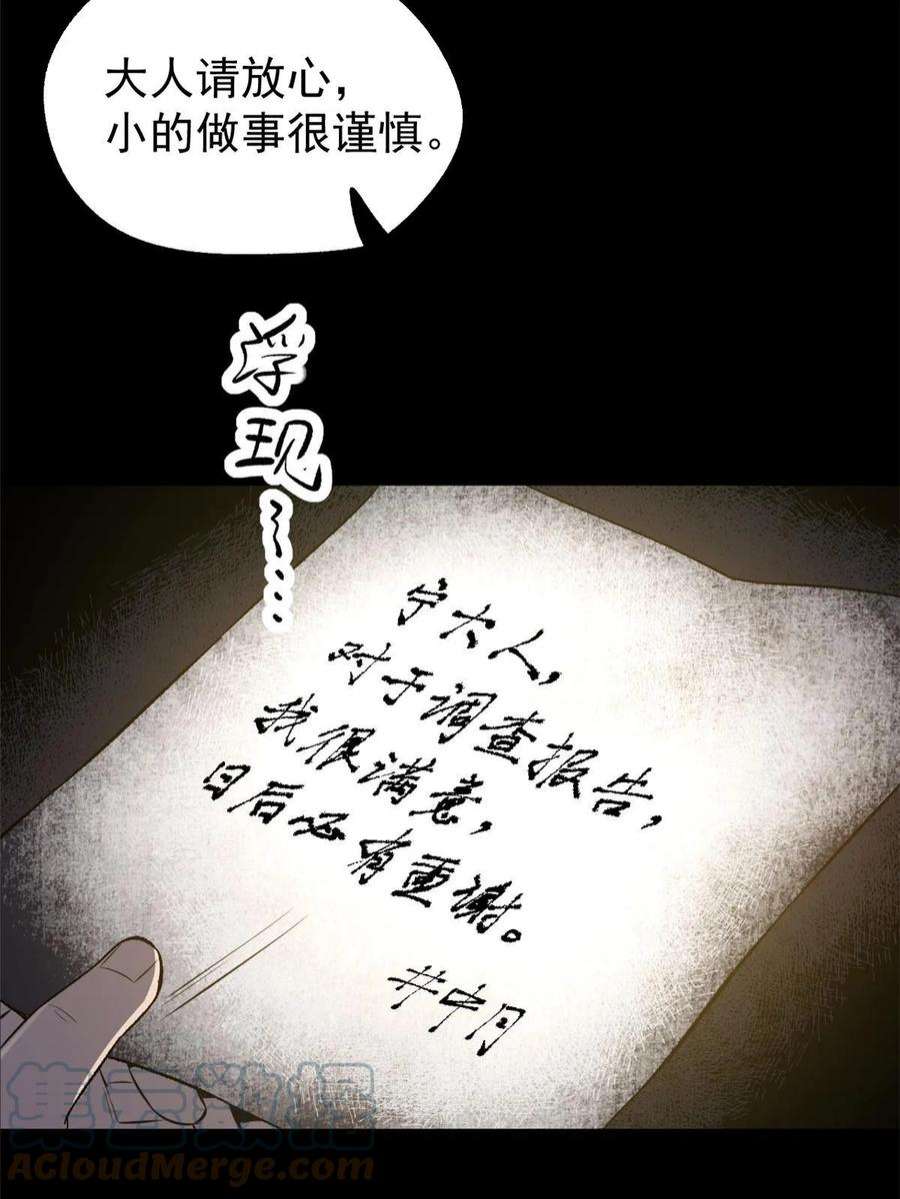 大人请放心，
小的做事很谨慎。
浮现……
宁大人，
对于调查报告，
我很满意，
日后必有重谢。
井中月
集云数据
ACloudMerge.com